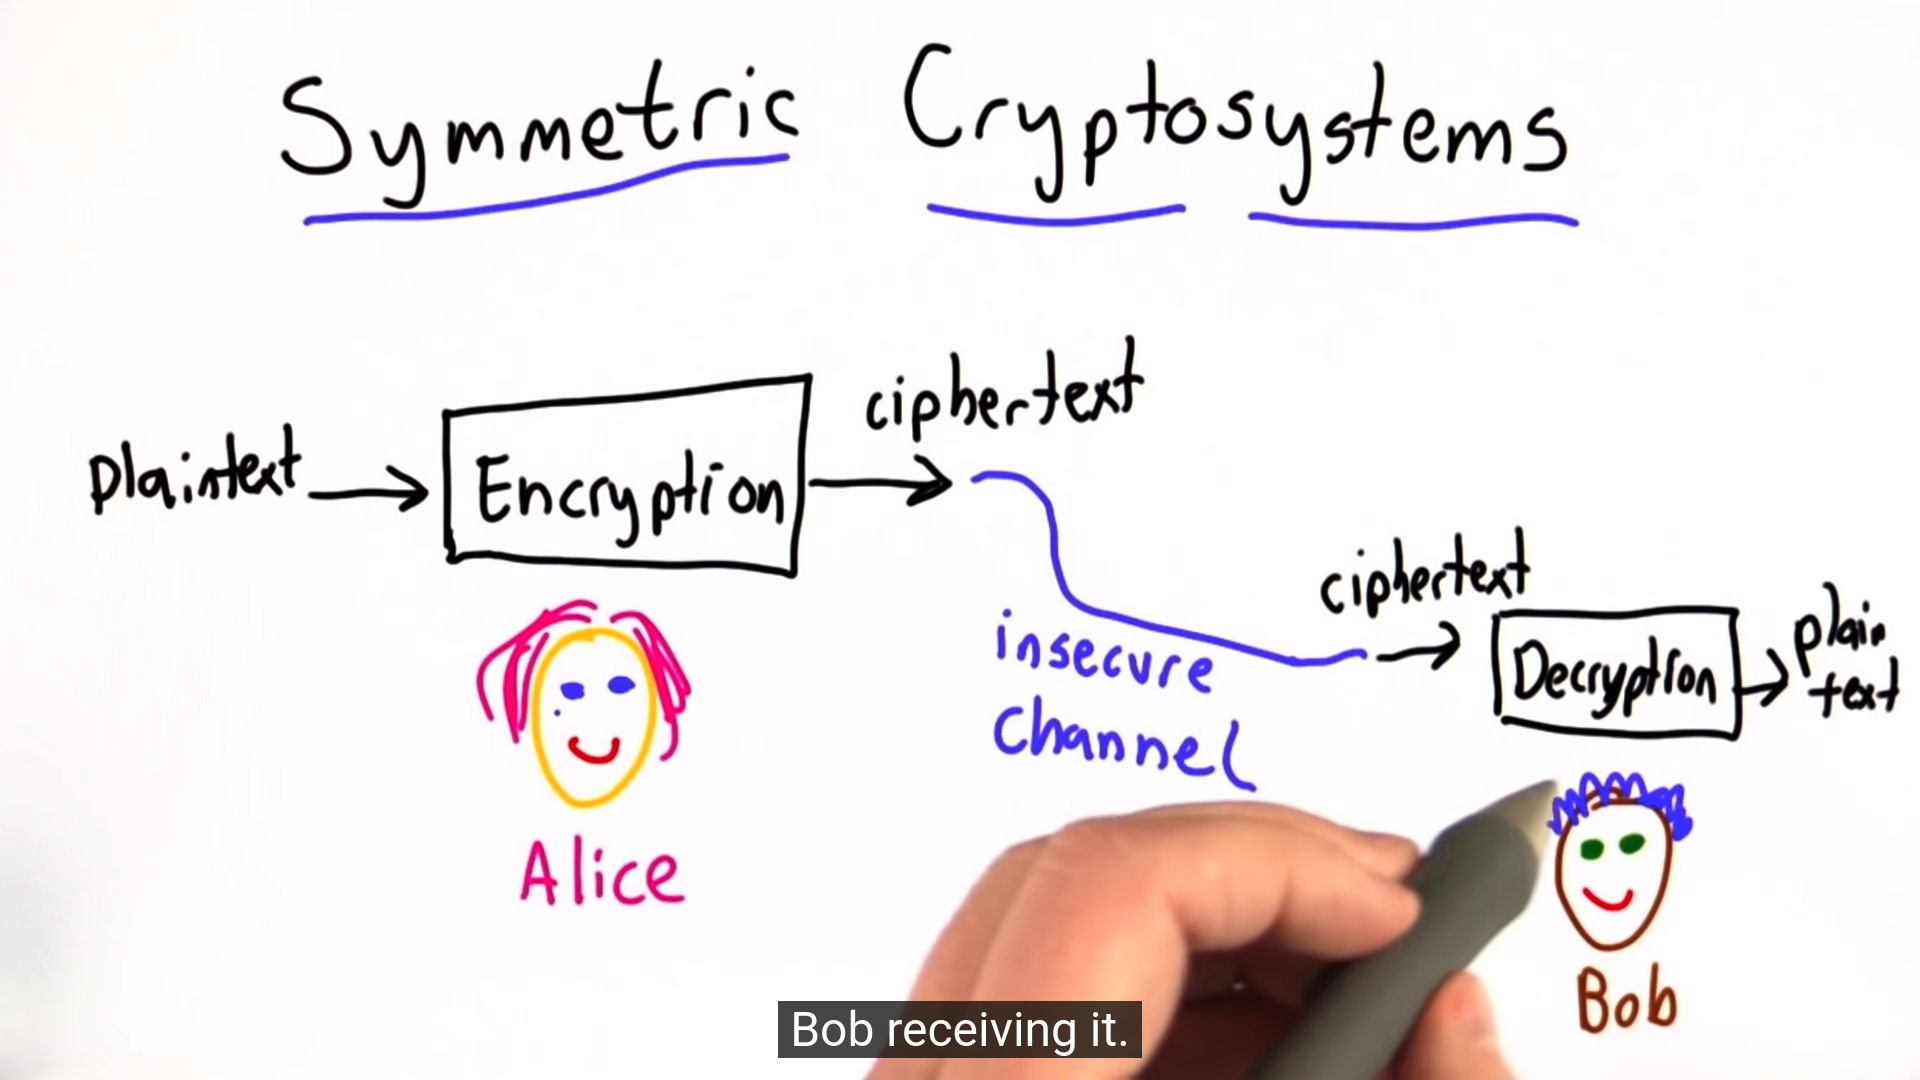 Symmetric Cryptosystems
ciphertext
plaintext
Encryption
ciphertext
insecure
channel
Decryption
plain
text
Alice
Bob
Bob receiving it.